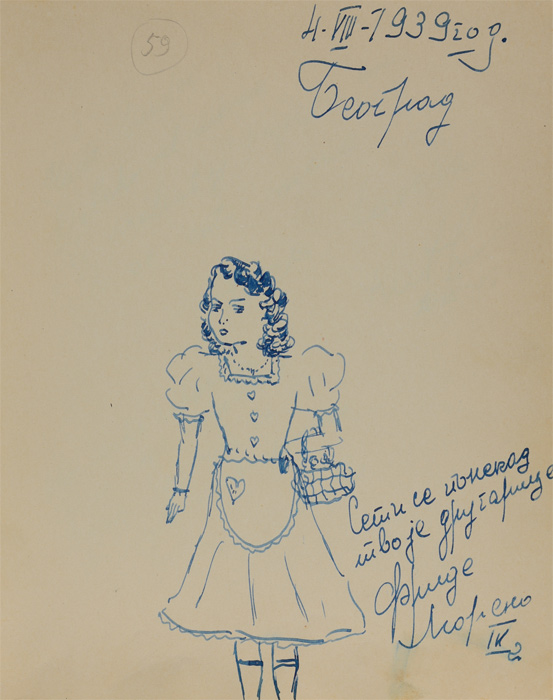 59
4-VIII-1939 год.
Београд
Сети се понекад
твоје другарице
Фриде
Морено
IV
2